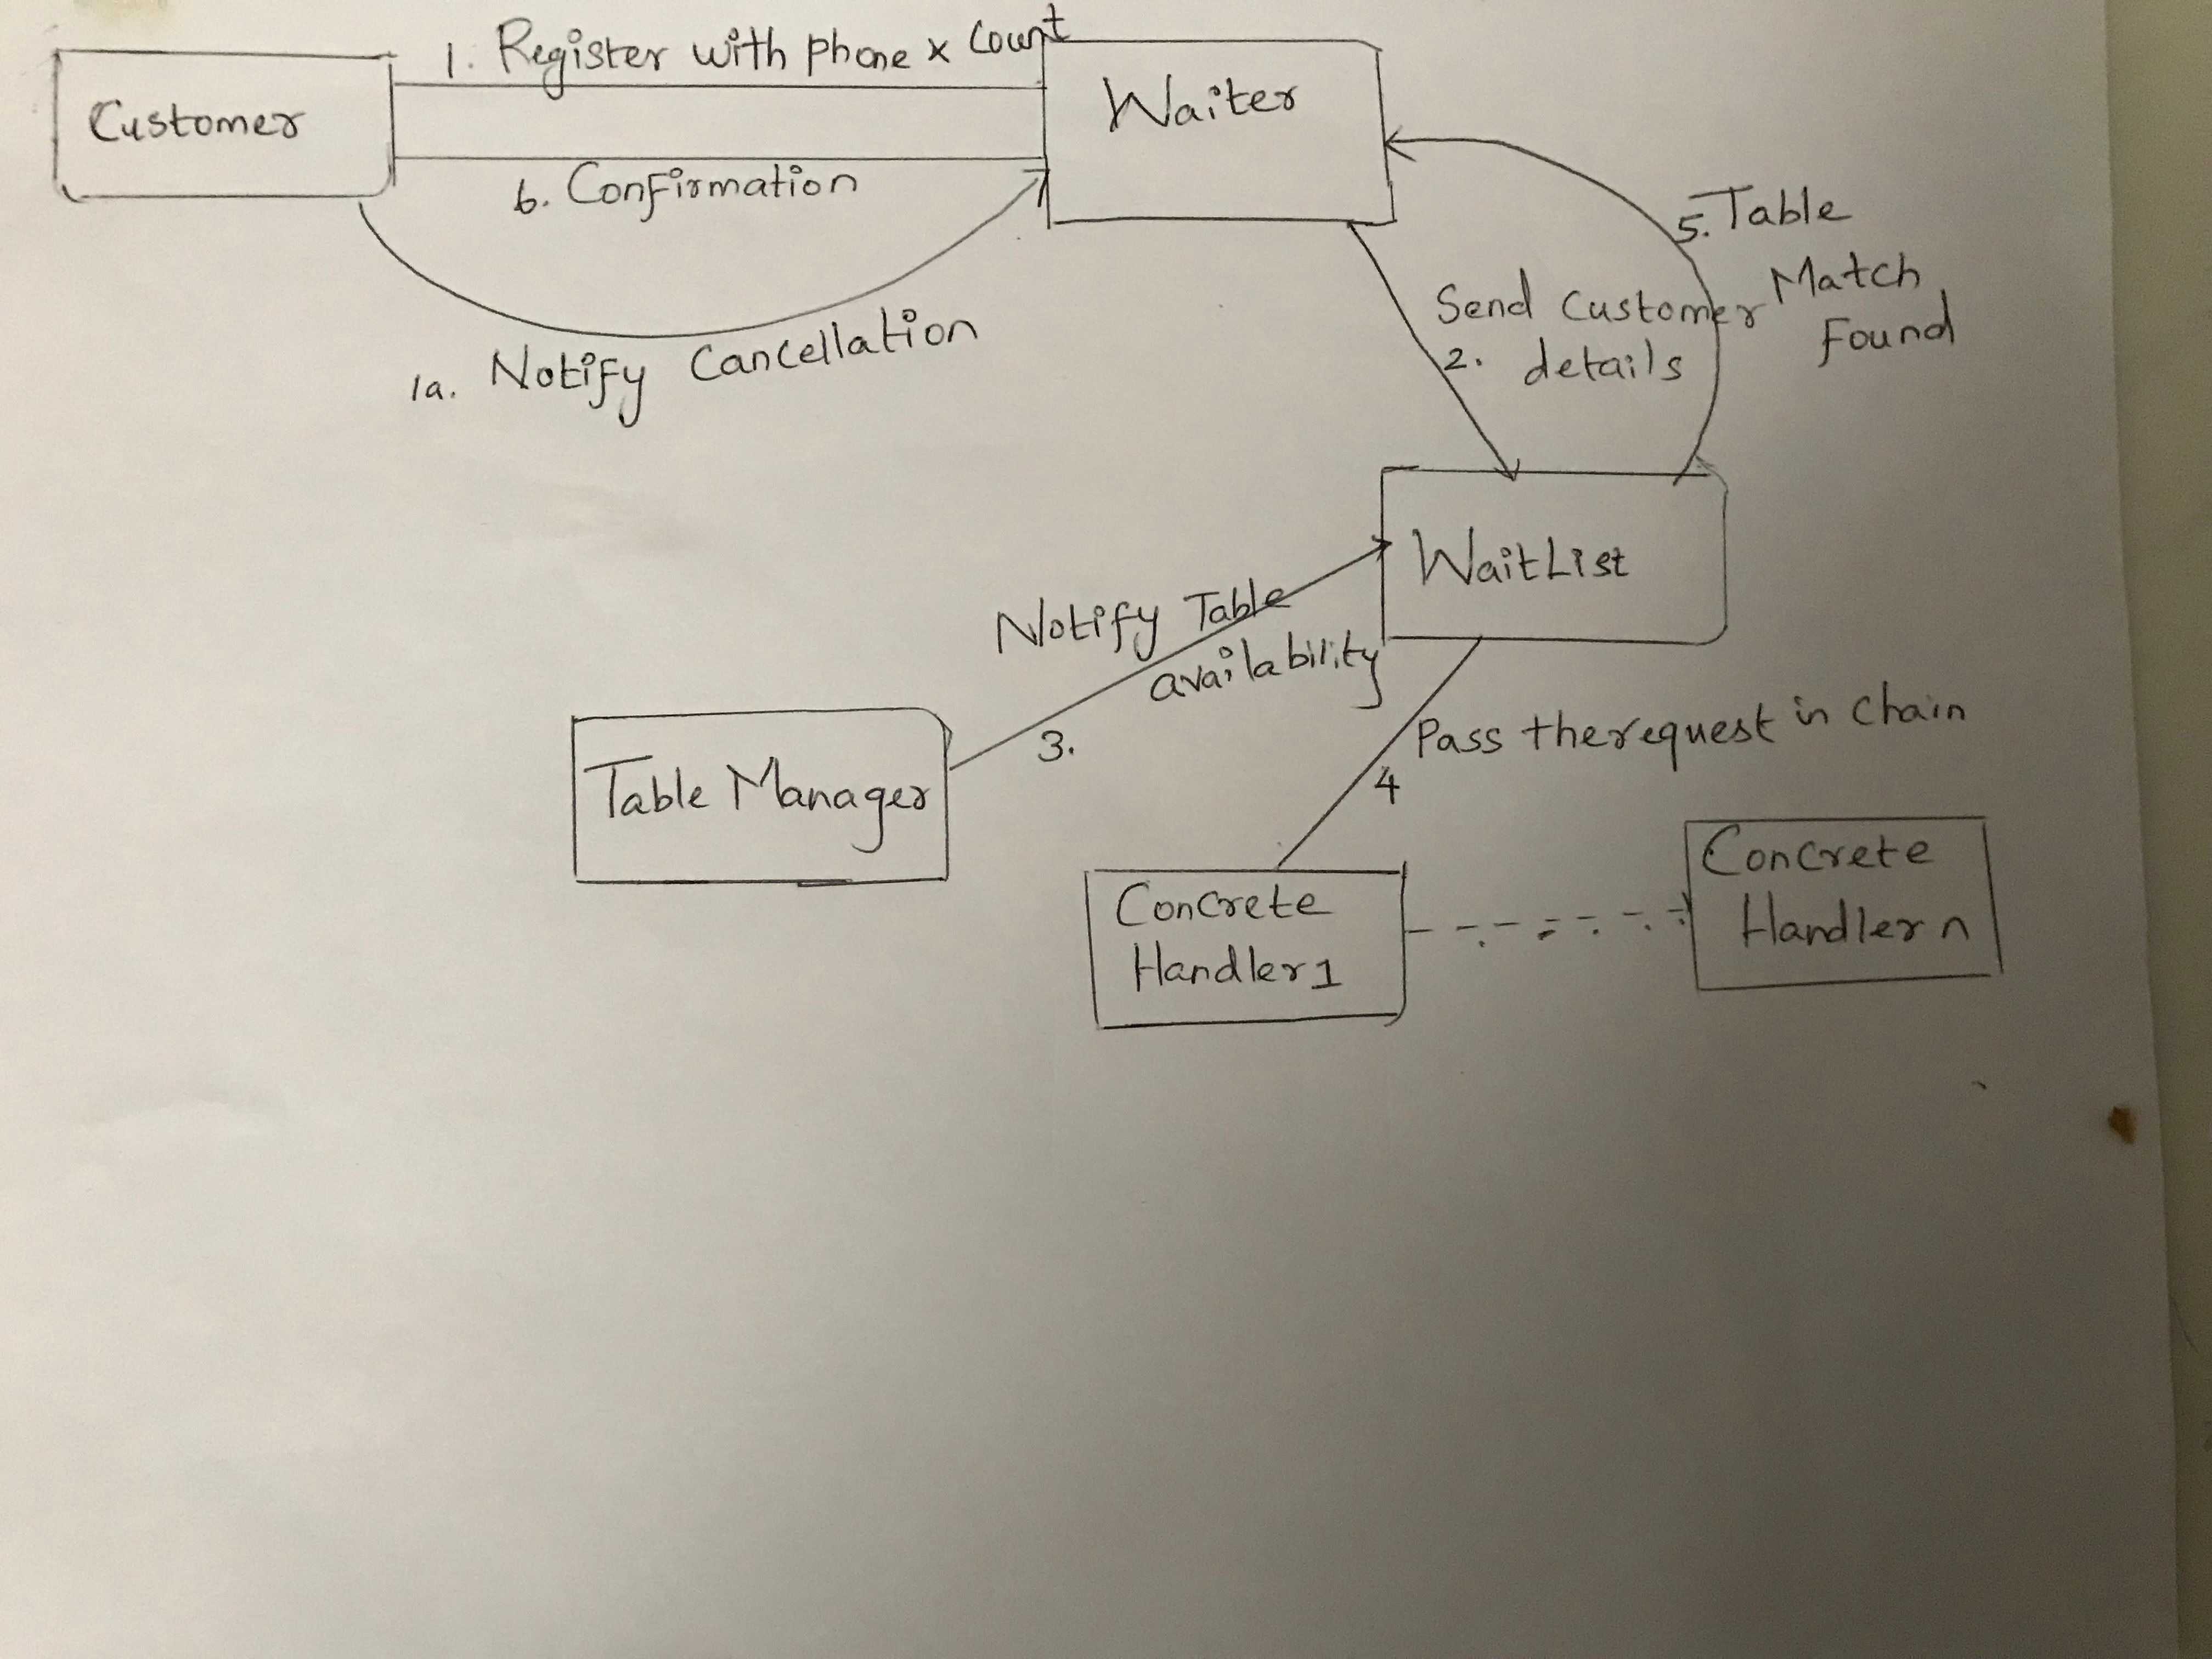 1. Register with phone x Count
Customer
Waiter
6. Confirmation
1a. Notify Cancellation
5. Table
Match
Found
Send Customer
2. details
WaitList
Notify Table
availability
3.
Table Manager
Pass the request in chain
4
Concrete
Handler 1
Concrete
Handler n